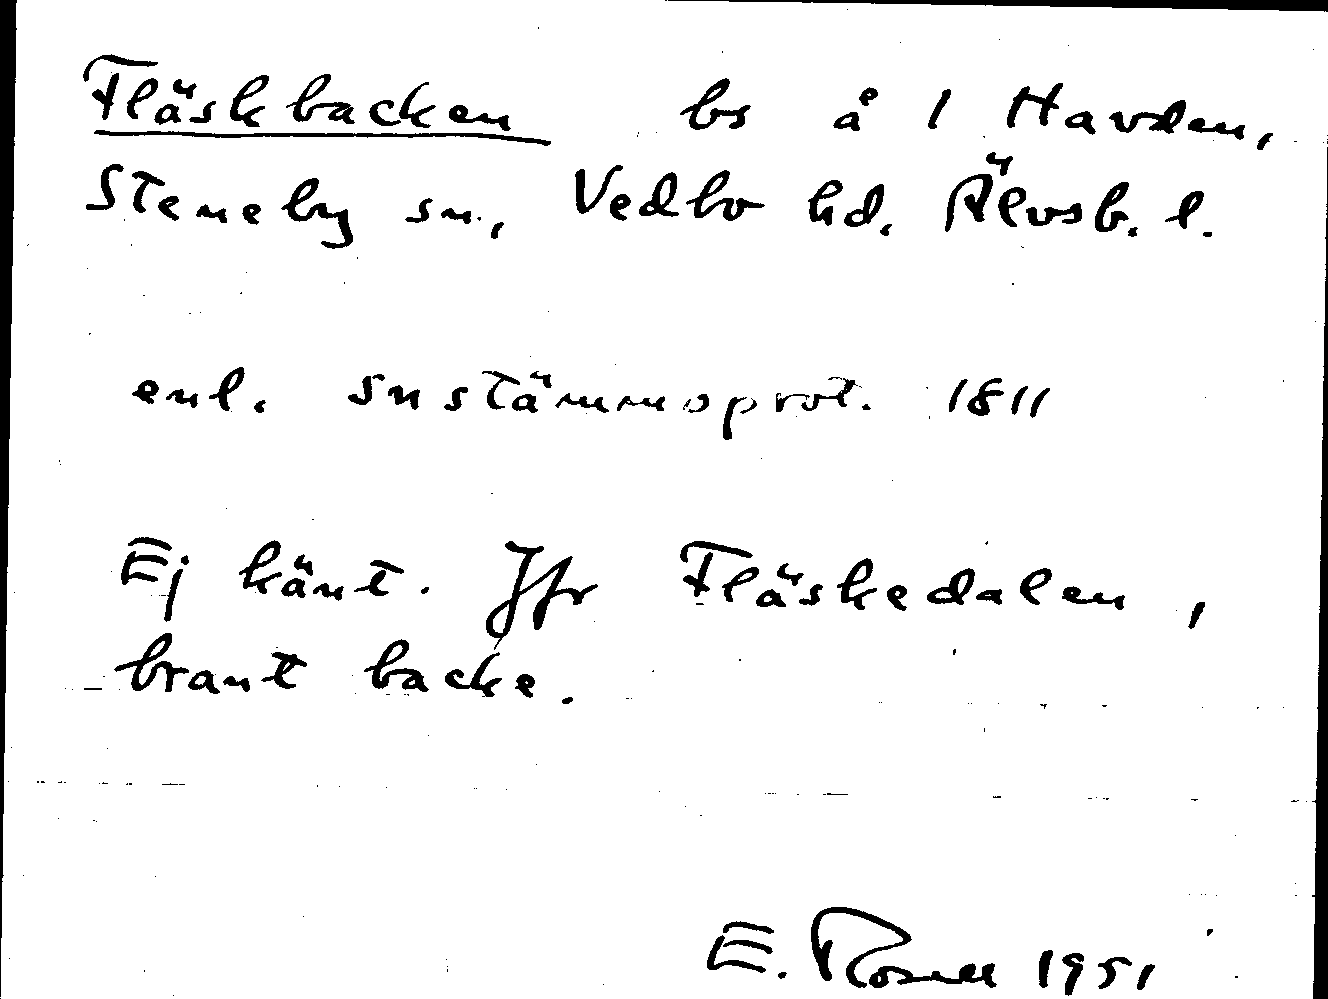 Fläskbacken bs å 1 Havden,
Steneby sn., Vedbo hd. Älvsb. l.
enl. snstämmoprot. 1811
Ej känt. Jfr Fläskedalen,
brant backe.
E. Rosell 1951